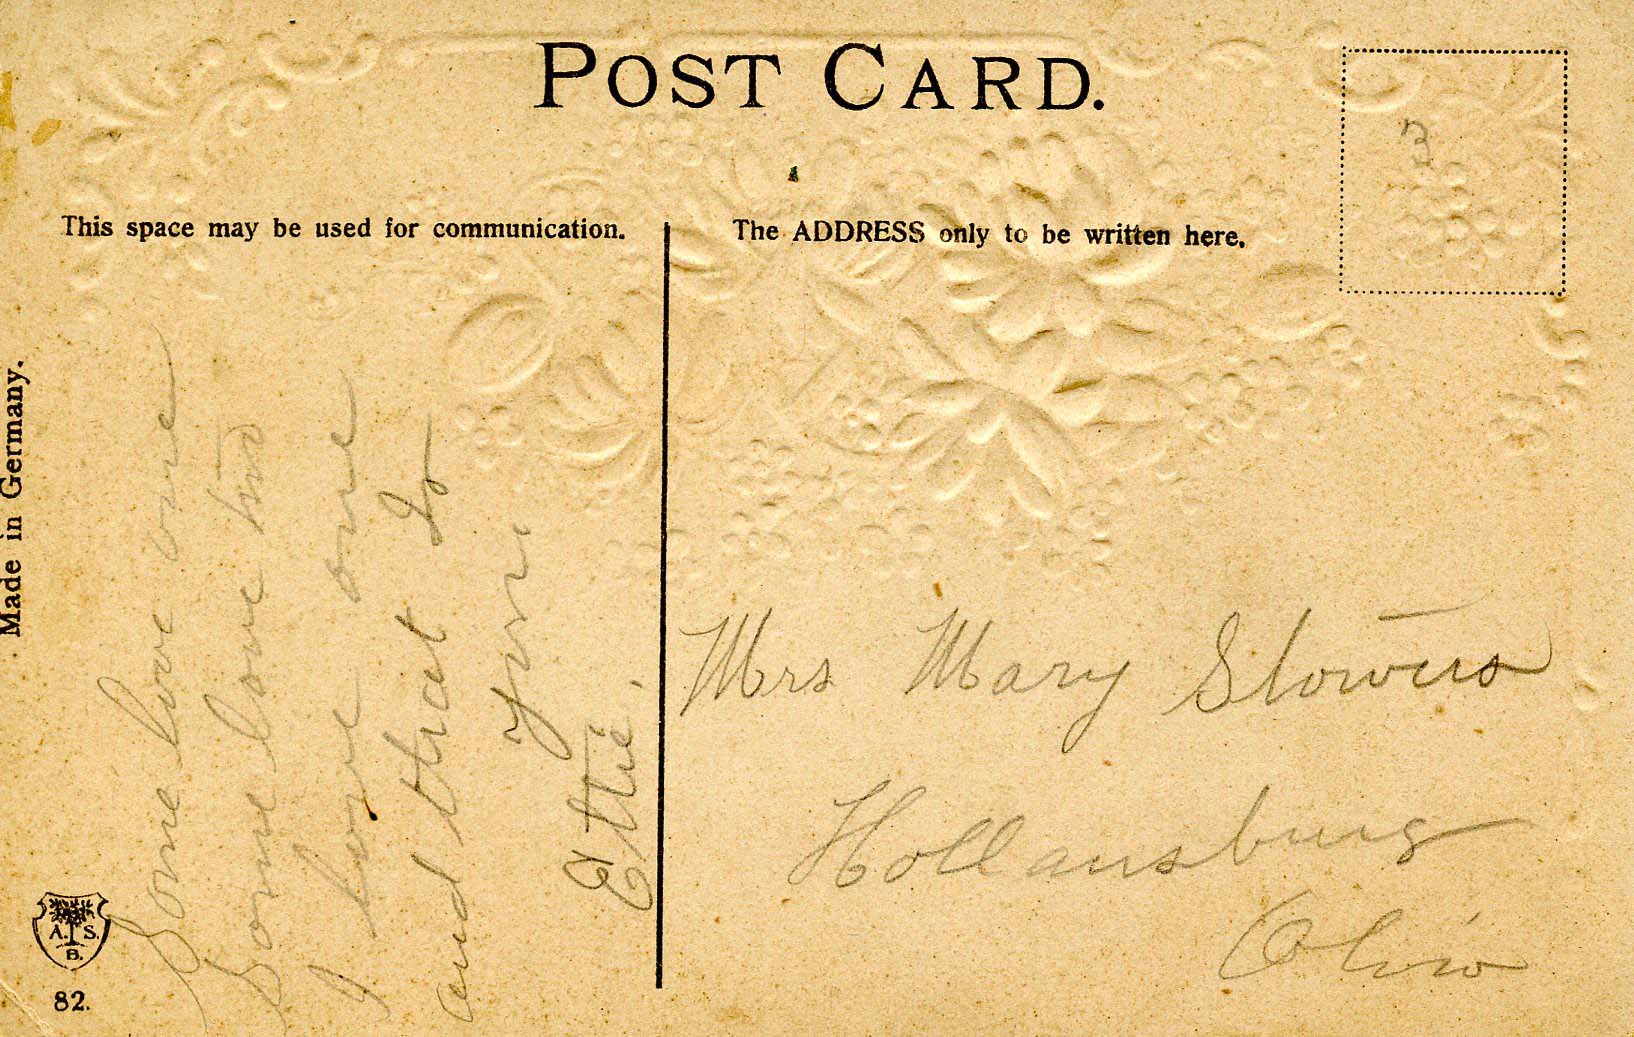 POST CARD.
This space may be used for communication.
The ADDRESS only to be written here.
Made in Germany.
Some love one
Some love two
I love one
and that is
you.
Ettie.
Mrs Mary Stowers
Hollansburg
Ohio
3
A. S.
B.
82.